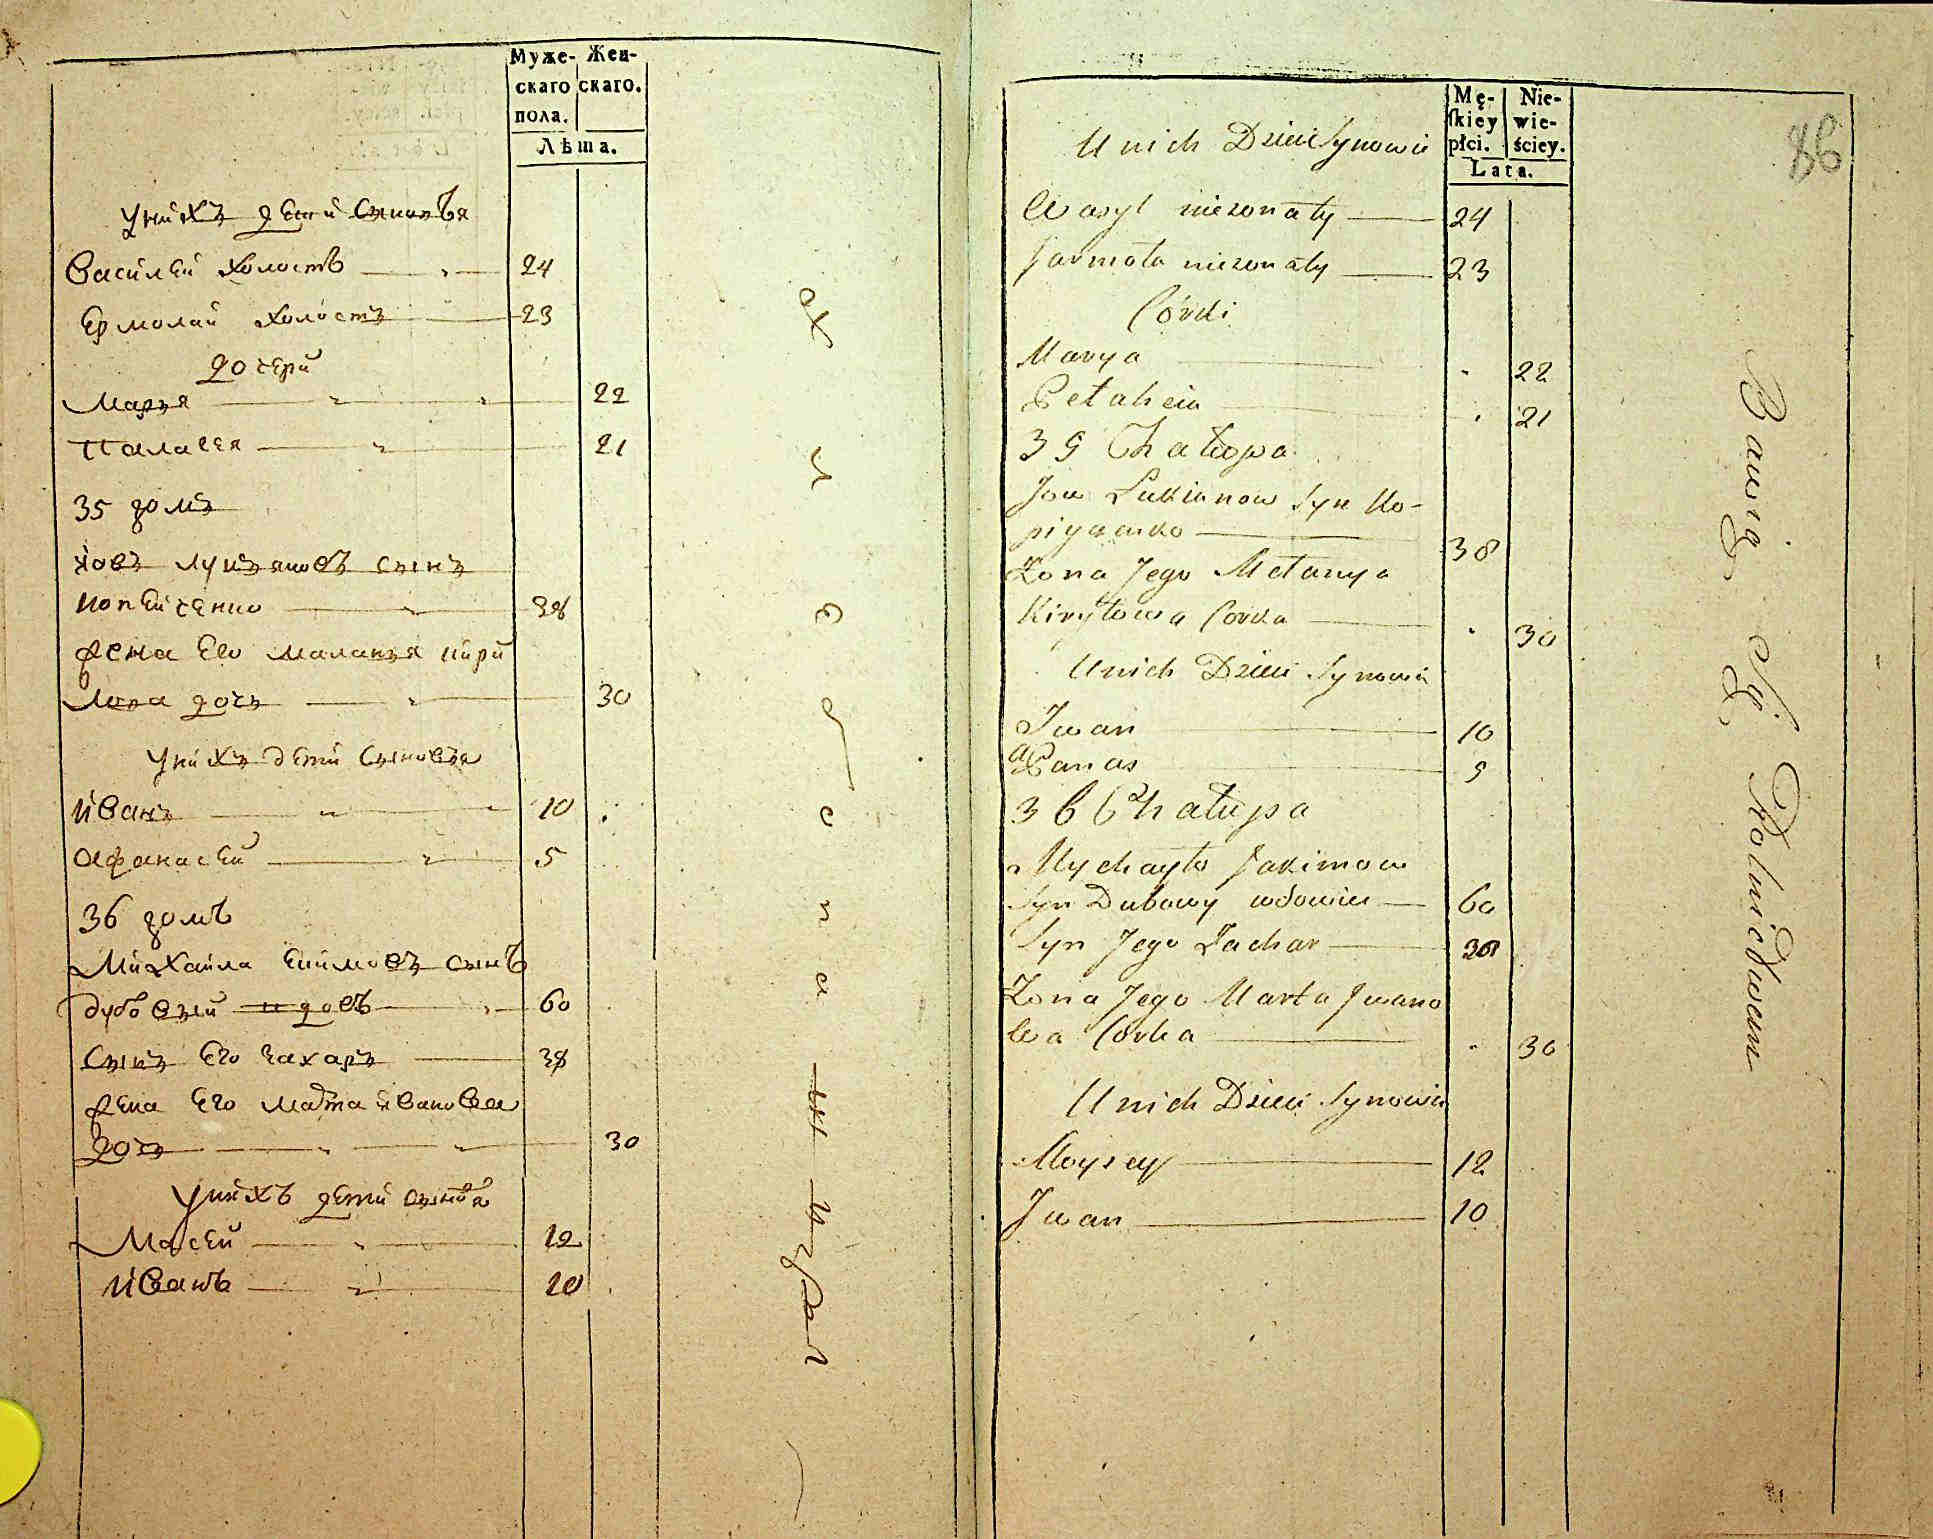 Муже-
скаго
пола.
Жен-
скаго.
Лѣта.
у нихъ дѣти сыновья
Василей холостъ 24
Ермолай холостъ 23
дочери
Марья 22
Паласея 21
35 домъ
Иовъ Лукьяновъ сынъ
Копейченко 38
жена Его Маланья Кири
лова дочь 30
у нихъ дѣти сыновья
Иванъ 10
Афанасей 5
36 домъ
Михайла Екимовъ сынъ
Дубовый вдовъ 60
Сынъ Его Захаръ 38
жена Его Марта Иванова
дочь 30
у нихъ дѣти сыновья
Мосей 12
Иванъ 10
Mę-
skiey
płci.
Nie-
wie-
ściey.
Lata.
86
U nich Dzieci Synowie
Wasyl niezonaty 24
Jarmoła niezonaty 23
Córki
Marya 22
Pełaheia 21
35 Chałupa
Jow Lukianow Syn Ko-
piyczenko 38
Zona Jego Mełanya
Kiryłowa Corka 30
U nich Dzieci Synowie
Iwan 10
aPanas 5
36 Chałupa
Mychayło Jakimow
Syn Dubowy wdowiec 60
Syn Jego Zachar 38
Zona Jego Marta Iwano
wa Corka 30
U nich Dzieci Synowie
Moysey 12
Iwan 10